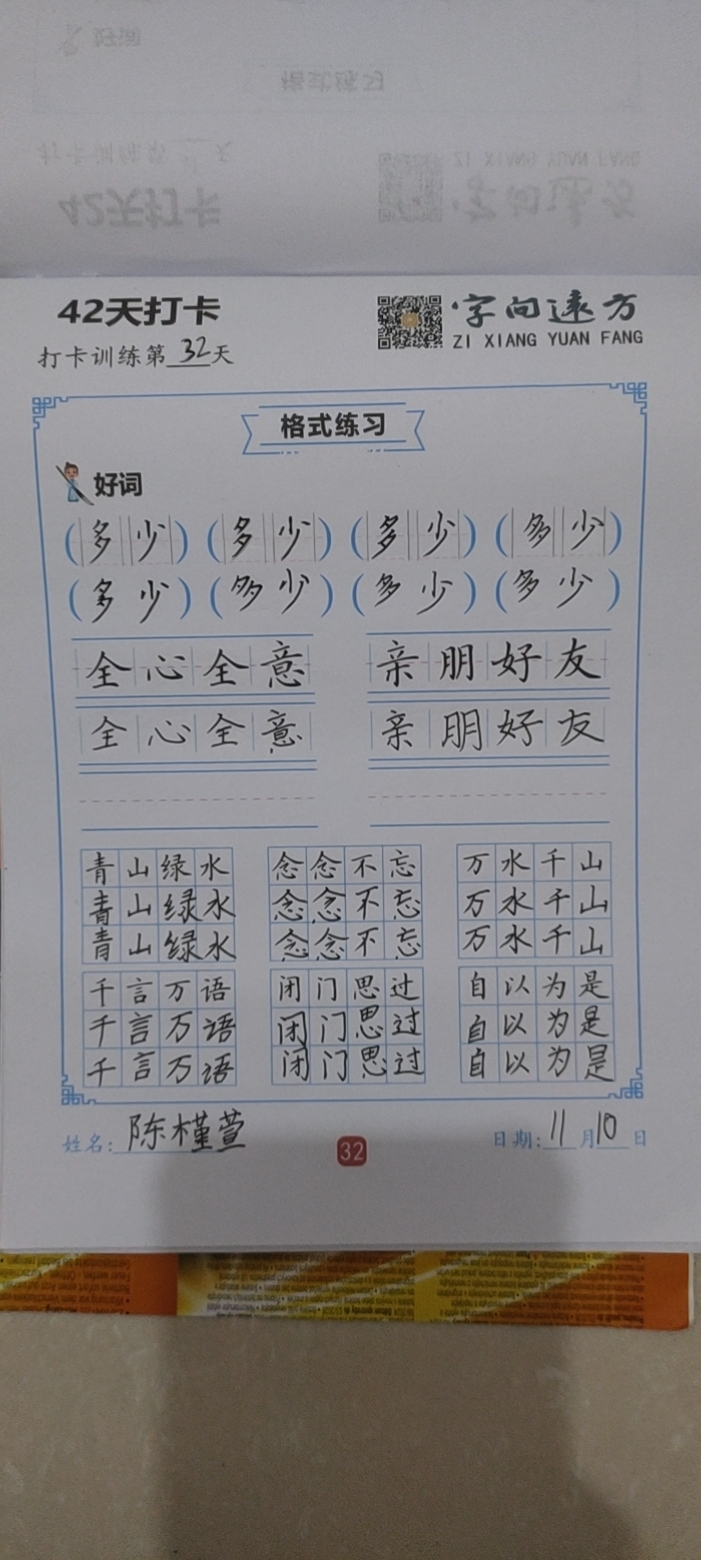 42天打卡
字向远方
ZI XIANG YUAN FANG
打卡训练第32天
格式练习
好词
(多少) (多少) (多少) (多少)
(多少) (多少) (多少) (多少)
全心全意 亲朋好友
全心全意 亲朋好友
青山绿水 念念不忘 万水千山
青山绿水 念念不忘 万水千山
青山绿水 念念不忘 万水千山
千言万语 闭门思过 自以为是
千言万语 闭门思过 自以为是
千言万语 闭门思过 自以为是
姓名:陈槿萱 32 日期:11月10日